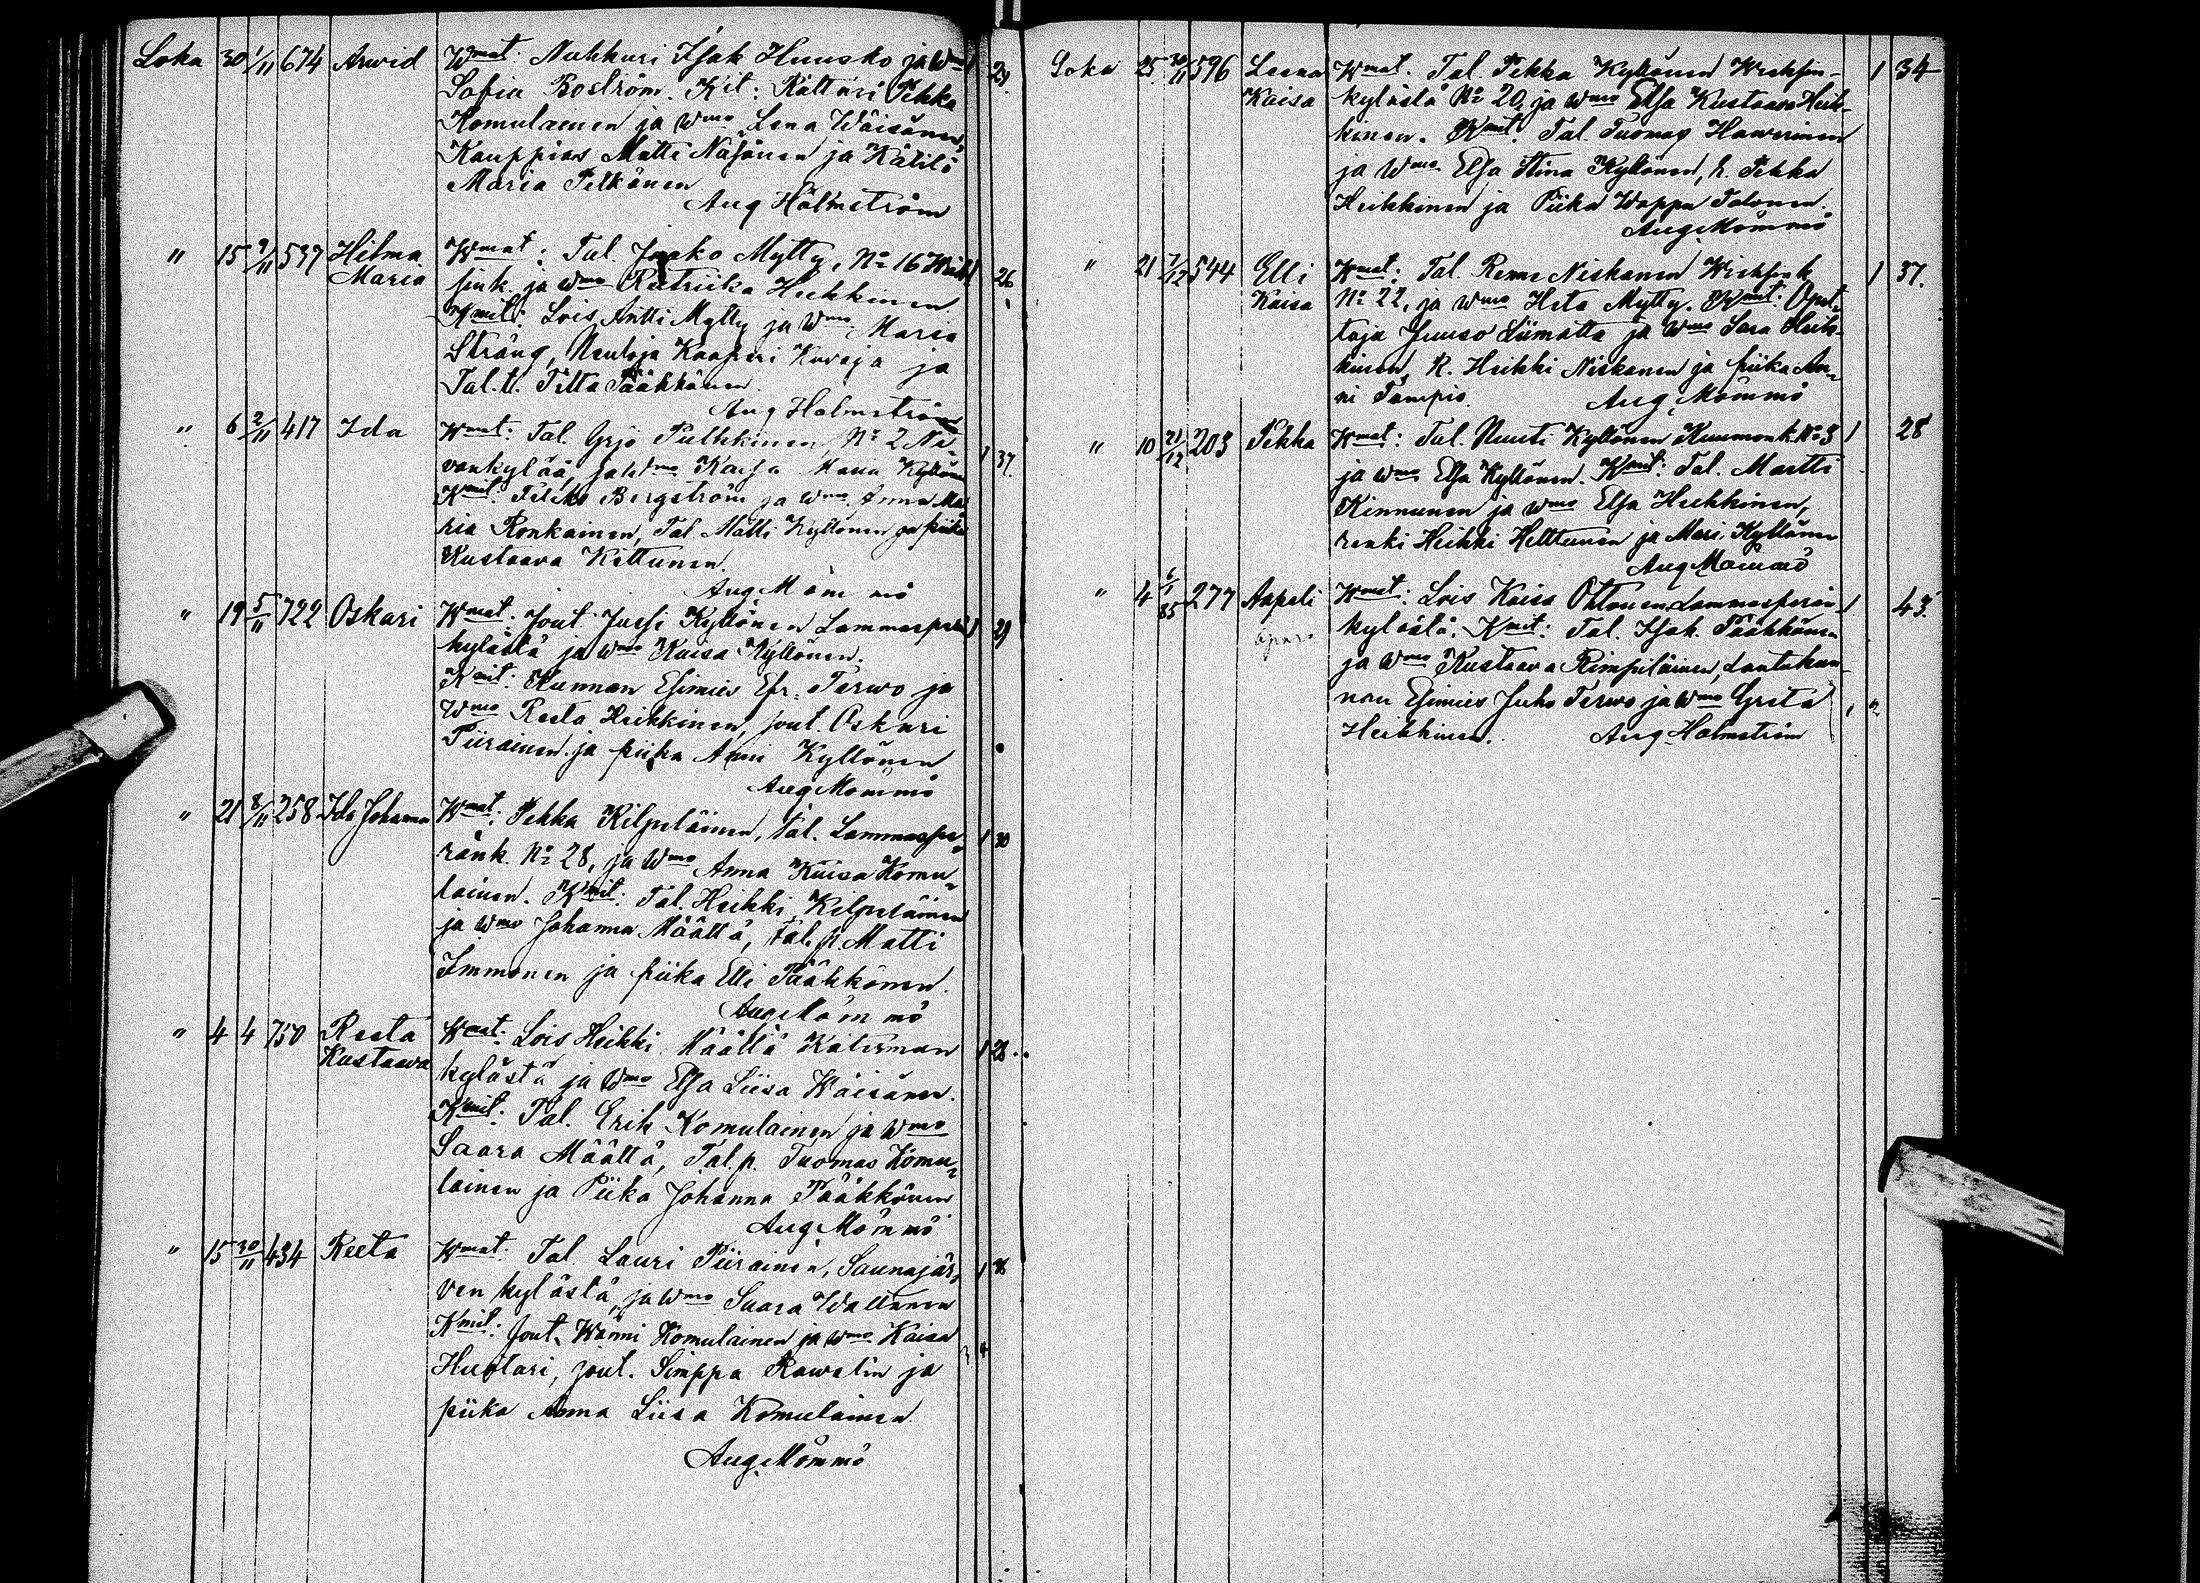 Loka 30 1/11 674 Arwid Wmat: Nahkuri Isak Huusko ja Wmo
Sofia Boström. Kit: Rättäri Pekka
Komulainen ja Wmo Lena Wäisänen,
Kauppias Matti Näsänen ja Kätilö
Maria Pelkönen
Aug Holmström
29.
" 15 9/11 537 Hilma Maria Wmat: Tal. Jaako Mytty, No 16
sink. ja Wmo Reetriika Heikkinen
Kmit: Lois Antti Mytty ja Wmo Maria
Sträng, Neuloja Kaaperi Kovaja ja
Tal. t. Tilta Pääkkönen.
Aug Holmström
26
" 6 2/11 417 Ida Wmat: Tal. Yrjö Pulkkinen, No 2 Ni-
vankylää, ja Wmo Kaisa Maria Kyllönen
Kmit: Bergström ja Wmo Anna Ma-
ria Ronkainen, Tal. Matti Kyllönen ja piika
Kustaava Kettunen.
Aug Mömmö
1 37.
" 19 5/11 722 Oskari Wmat: Jout. Jussi Kyllönen Lammasperän
kylästä ja Wmo Kaisa Kyllönen.
Kmit: Kunnan Esimies Efr. Terwo ja
Wmo Reeta Heikkinen, jout. Oskari
Piirainen ja piika Anni Kyllönen
Aug Mömmö
1 29
" 21 8/11 258 Ida Johanna Wmat: Pekka Kilpeläinen, tal. Lammaspe-
ränk. No 28, ja Wmo Anna Kaisa Komu-
lainen. Kmit: Tal. Heikki Kilpeläinen
ja Wmo Johanna Määttä, tal. p. Matti
Immonen ja piika Elli Pääkkönen.
Aug Mömmö
1 30
" 4 4 750 Reeta Kustaava Wmat: Lois Heikki Määttä Katerman
kylästä ja Wmo Elsa Liisa Wäisänen.
Kmit: Tal. Erik Komulainen ja Wmo
Saara Määttä, Tal. p. Tuomas Komu-
lainen ja Piika Johanna Pääkkönen
Aug. Mömmö
1 28
" 15 30/11 434 Reeta Wmat: Tal. Lauri Piirainen, Saunajär-
ven kylästä, ja Wmo Saara Waltanen
Kmit: Jout. Wänni Komulainen ja Wmo Kaisa
Huotari, jout. Simppa Rawelin ja
piika Anna Liisa Komulainen.
Aug. Mömmö
1 36
Loka 25 30/11 596 Leena Kaisa Wmat. Tal. Pekka Kyllönen Wieksin-
kylästä No 20, ja Wmo Elsa Kustaava Heik-
kinen. Kmit: Tal. Tuomas Hawerinen
ja Wmo Elsa Stina Kyllönen, r. Pekka
Heikkinen ja Piika Wappu Tolonen.
Aug. Mömmö
1 34
" 21 7/12 544 Elli Kaisa Wmat: Tal. Niskanen Wieksink
No 22, ja Wmo Heta Mytty. Kmit: Opet-
taja Juuso Liimatta ja Wmo Sara Heik-
kinen, R. Heikki Niskanen ja piika An-
ni Tampio.
Aug. Mömmö
1 37.
" 10 21/12 203 Pekka Wmat: Tal. Nuuti Kyllönen Kuumonk. No 3
ja Wmo Elsa Kyllönen. Kmit: Tal. Martti
Kinnunen ja Wmo Elsa Heikkinen,
renki Heikki Helttunen ja Mari Kyllönen
Aug Mömmö
1 28
" 4 6/1 85 277 Aapeli Wmat: Lois Kaisa Ohtonen Lammasperän
kylästä. Kmit: Tal. Isak Pääkkönen
ja Wmo Kustaava Rimpiläinen, Lautakun-
nan Esimies Juho Terwo ja Wmo Greta
Heikkinen.
Aug. Holmström
1 43.